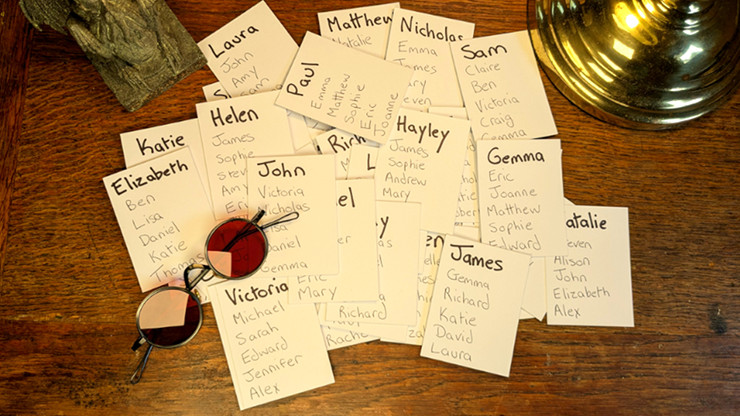 Laura
John
Amy
Matthew
Natalie
Nicholas
Emma
James
Sam
Claire
Ben
Victoria
Craig
Gemma
Paul
Emma
Matthew
Sophie
Eric
Joanne
Katie
Helen
James
Sophie
Amy
Hayley
James
Sophie
Andrew
Mary
Gemma
Eric
Joanne
Matthew
Sophie
Edward
Elizabeth
Ben
Lisa
Daniel
Katie
Thomas
John
Victoria
Nicholas
Lisa
Daniel
Gemma
Eric
Mary
Richard
Victoria
Michael
Sarah
Edward
Jennifer
Alex
James
Gemma
Richard
Katie
David
Laura
atalie
teven
Alison
John
Elizabeth
Alex